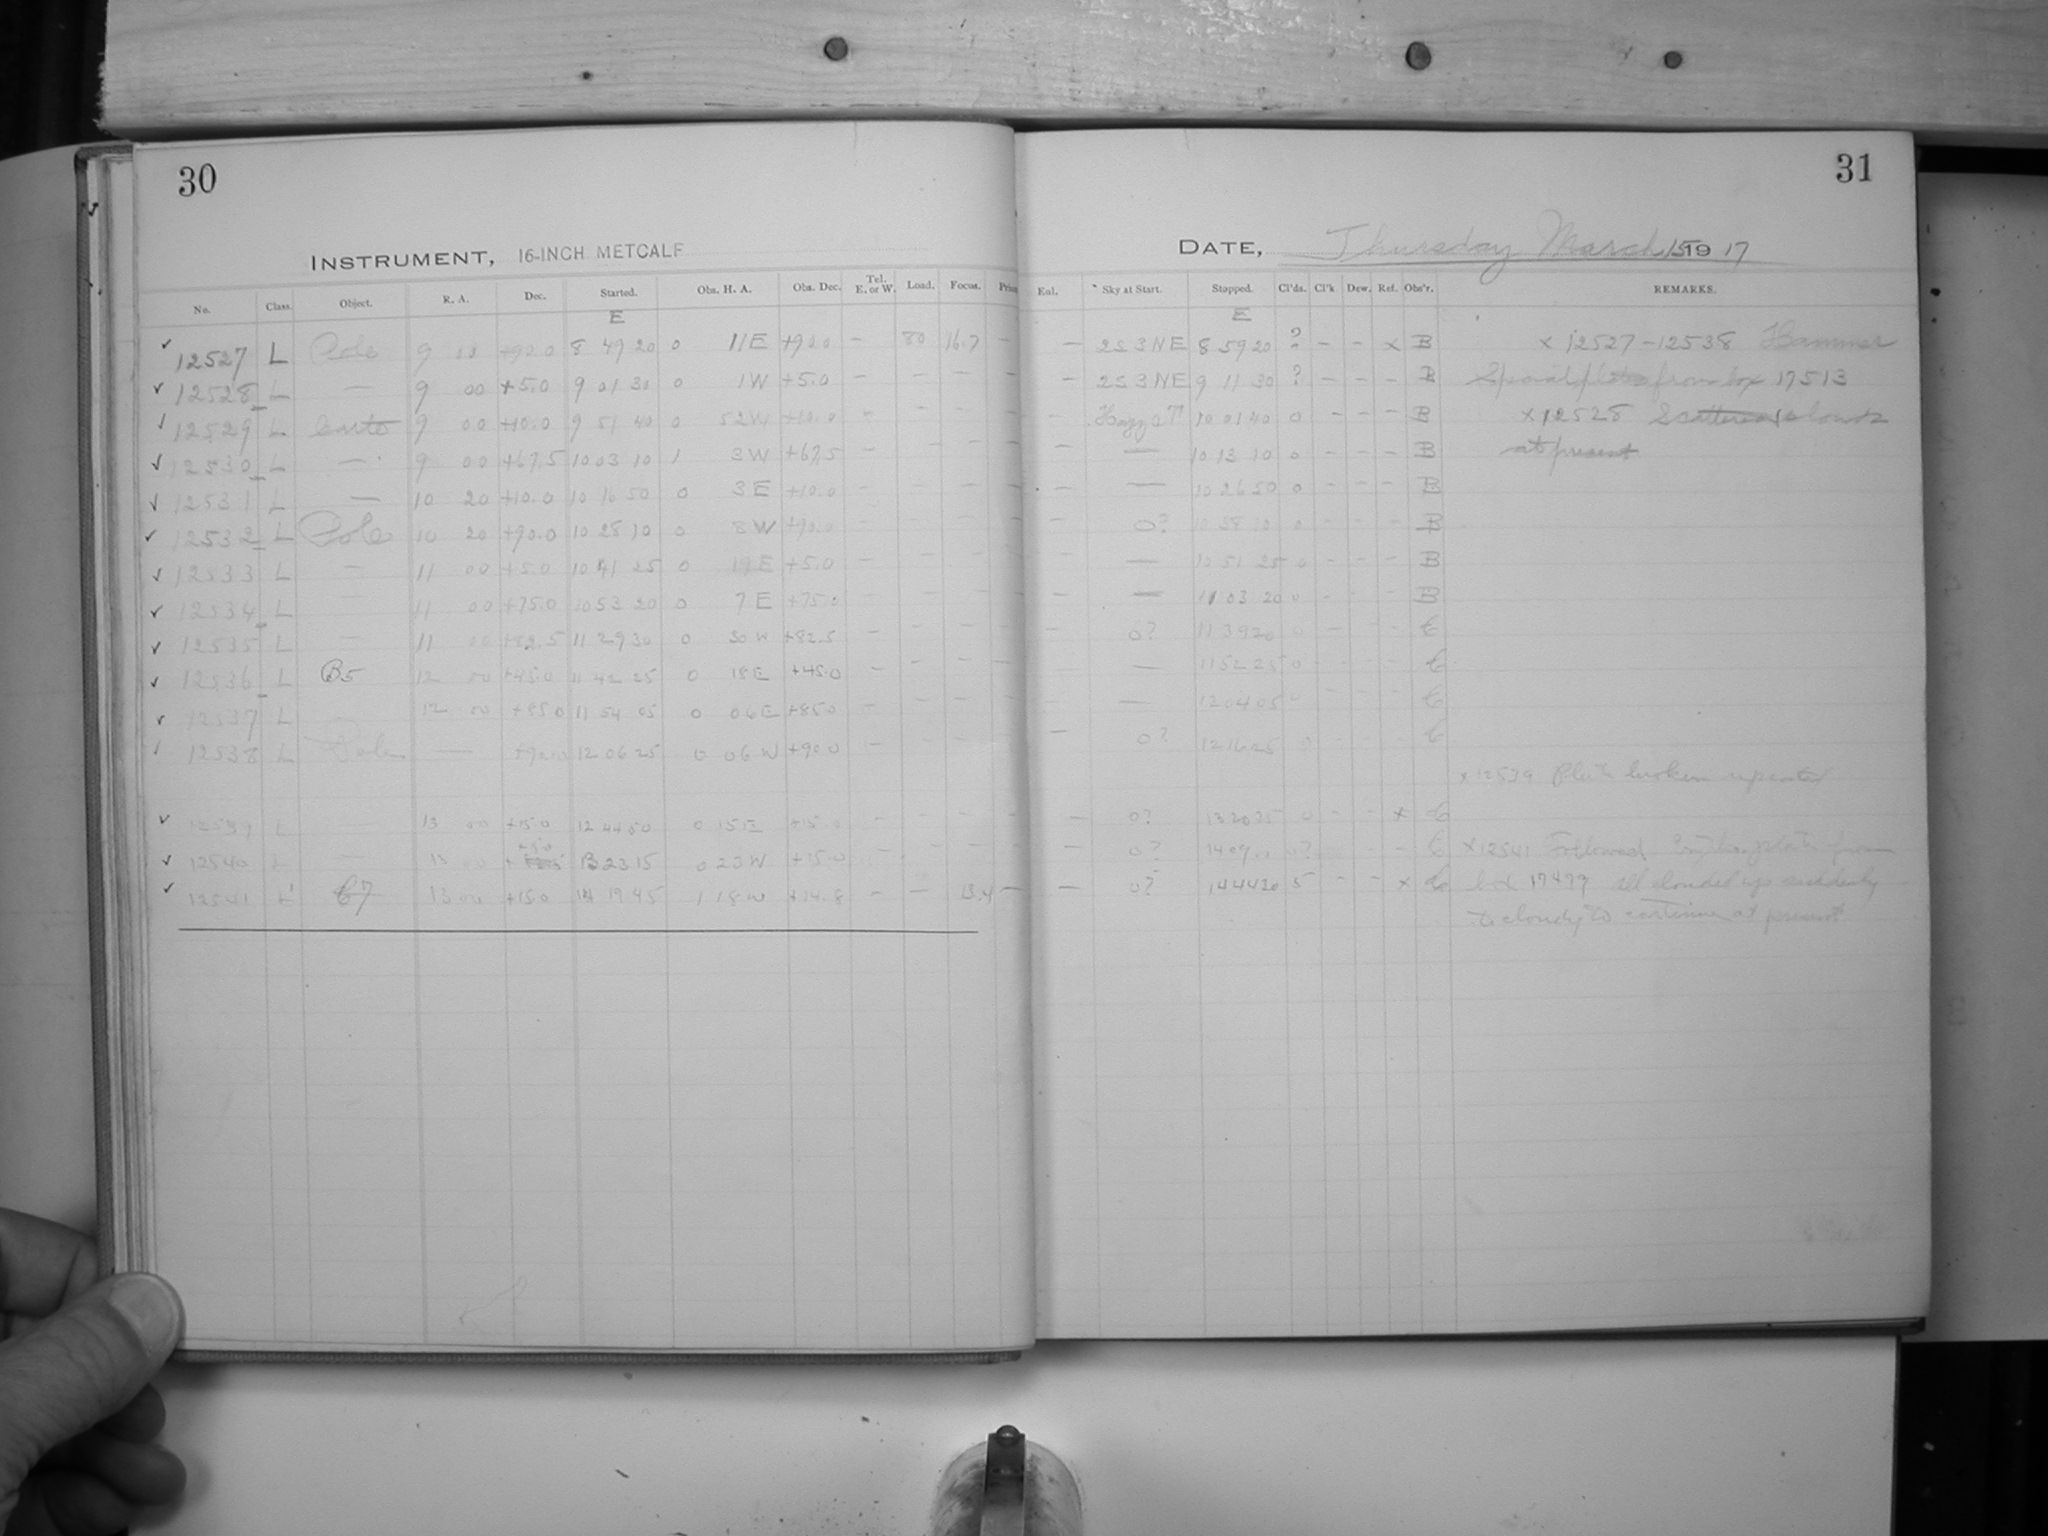 30
31
INSTRUMENT, 16-INCH METCALF
DATE, Thursday March 15 1917
No. Class. Object. R. A. Dec. Started. Obs. H. A. Obs. Dec. Tel. E. or W. Load. Focus.
Eul. Sky at Start. Stopped. Cl'ds. Cl'k Dew. Ref. Obs'r. REMARKS.
E E
✓ 12527 L Pole 9 +90.0 8 49 20 0 11E +90.0 – 80 16.7 – – 2S 3NE 8 59 20 ? – – x B x 12527–12538 Hammer
✓ 12528 L — 9 00 +5.0 9 01 30 0 1W +5.0 – – – – – 2S 3NE 9 11 30 ? – – – B Special plates from box 17513
✓ 12529 L 9 00 +10.0 9 51 40 0 52W +10.0 – – – – – 10 01 40 0 – – – B x 12528 Scattered clouds
✓ 12530 L — 9 00 +67.5 10 03 10 1 3W +67.5 – – – – – — 10 13 10 0 – – – B at present
✓ 12531 L — 10 20 +10.0 10 16 50 0 3E +10.0 – – – – – — 10 26 50 0 – – – B
✓ 12532 L Pole 10 20 +90.0 10 28 10 0 8W +90.0 – – – – – 0? 10 38 10 0 – – – B
✓ 12533 L — 11 00 +5.0 10 41 25 0 19E +5.0 – – – – – — 10 51 25 0 – – – B
✓ 12534 L — 11 00 +75.0 10 53 20 0 7E +75.0 – – – – – — 11 03 20 0 – – – B
✓ 12535 L — 11 00 +82.5 11 29 30 0 30W +82.5 – – – – – 0? 11 39 20 0 – – – C
✓ 12536 L B5 12 00 +45.0 11 42 25 0 18E +45.0 – – – – – — 11 52 25 0 – – – C
✓ 12537 L 12 00 +85.0 11 54 05 0 06E +85.0 – – – – – — 12 04 05 0 – – – C
✓ 12538 L Pole — +90.0 12 06 25 0 06W +90.0 – – – – – 0? 12 16 25 0 – – – C
x 12539 Plate broken repeated
✓ 12539 L — 13 00 +15.0 12 44 50 0 15E +15.0 – – – – – 0? 13 20 35 0 – – x C
✓ 12540 L — 13 00 +15.0 13 23 15 0 23W +15.0 – – – – – 0? 0? – – – C x 12541 Followed plate from
✓ 12541 L' C7 13 00 +15.0 14 19 45 1 18W +14.8 – – 13.4 – – 0? 14 44 20 5 – – x C box 17499 all clouded up suddenly
to cloudy to continue at present